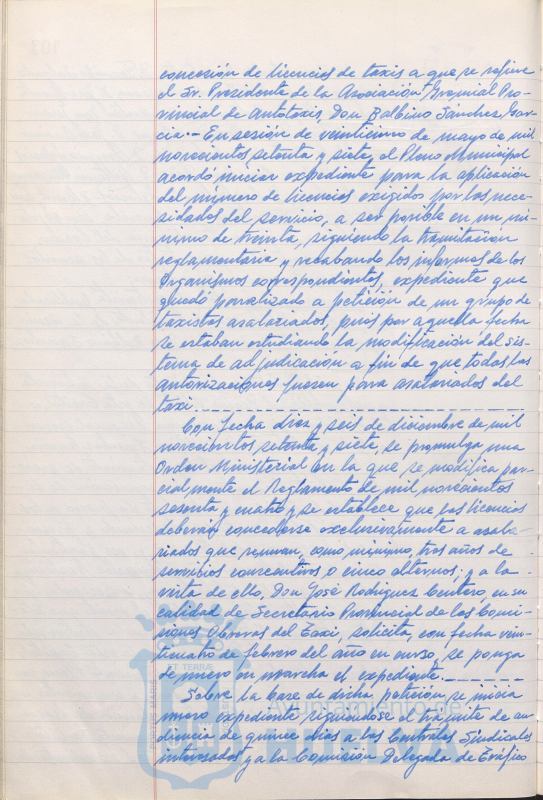 concesión de licencias de taxis a que se refiere
el Sr. Presidente de la Asociación Gremial Pro-
vincial de Autotaxis, Don Balbino Sánchez Gar-
cia.- En sesión de veinticinco de mayo de mil
novecientos setenta y siete, el Pleno Municipal
acordó iniciar expediente para la aplicación
del número de licencias exigidos por las nece-
sidades del servicio, a ser posible en un mí-
nimo de treinta, siguiendo la tramitación
reglamentaria y recabando los informes de los
Organismos correspondientes, expediente que
quedó paralizado a petición de un grupo de
taxistas asalariados, pues por aquella fecha
se estaban estudiando la modificación del sis-
tema de adjudicación a fin de que todas las
autorizaciones fuesen para asalariados del
taxi.
Con fecha diez y seis de diciembre de mil
novecientos setenta y siete, se promulga una
Orden Ministerial en la que se modifica par-
cialmente el Reglamento de mil novecientos
sesenta y cuatro y se establece que las licencias
deberán concederse exclusivamente a asala-
riados que reunan, como mínimo, tres años de
servicios consecutivos o cinco alternos; y a la
vista de ello, Don José Rodriguez Centeno, en su
calidad de Secretario Provincial de las Comi-
siones Obreras del Taxi, solicita, con fecha vein-
ticuatro de febrero del año en curso, se ponga
de nuevo en marcha el expediente.
Sobre la base de dicha petición se inicia
nuevo expediente siguiendose el trámite de au-
diencia de quince días a las Centrales Sindicales
interesadas y a la Comisión Delegada de Tráfico
Ayuntamiento de
HUELVA